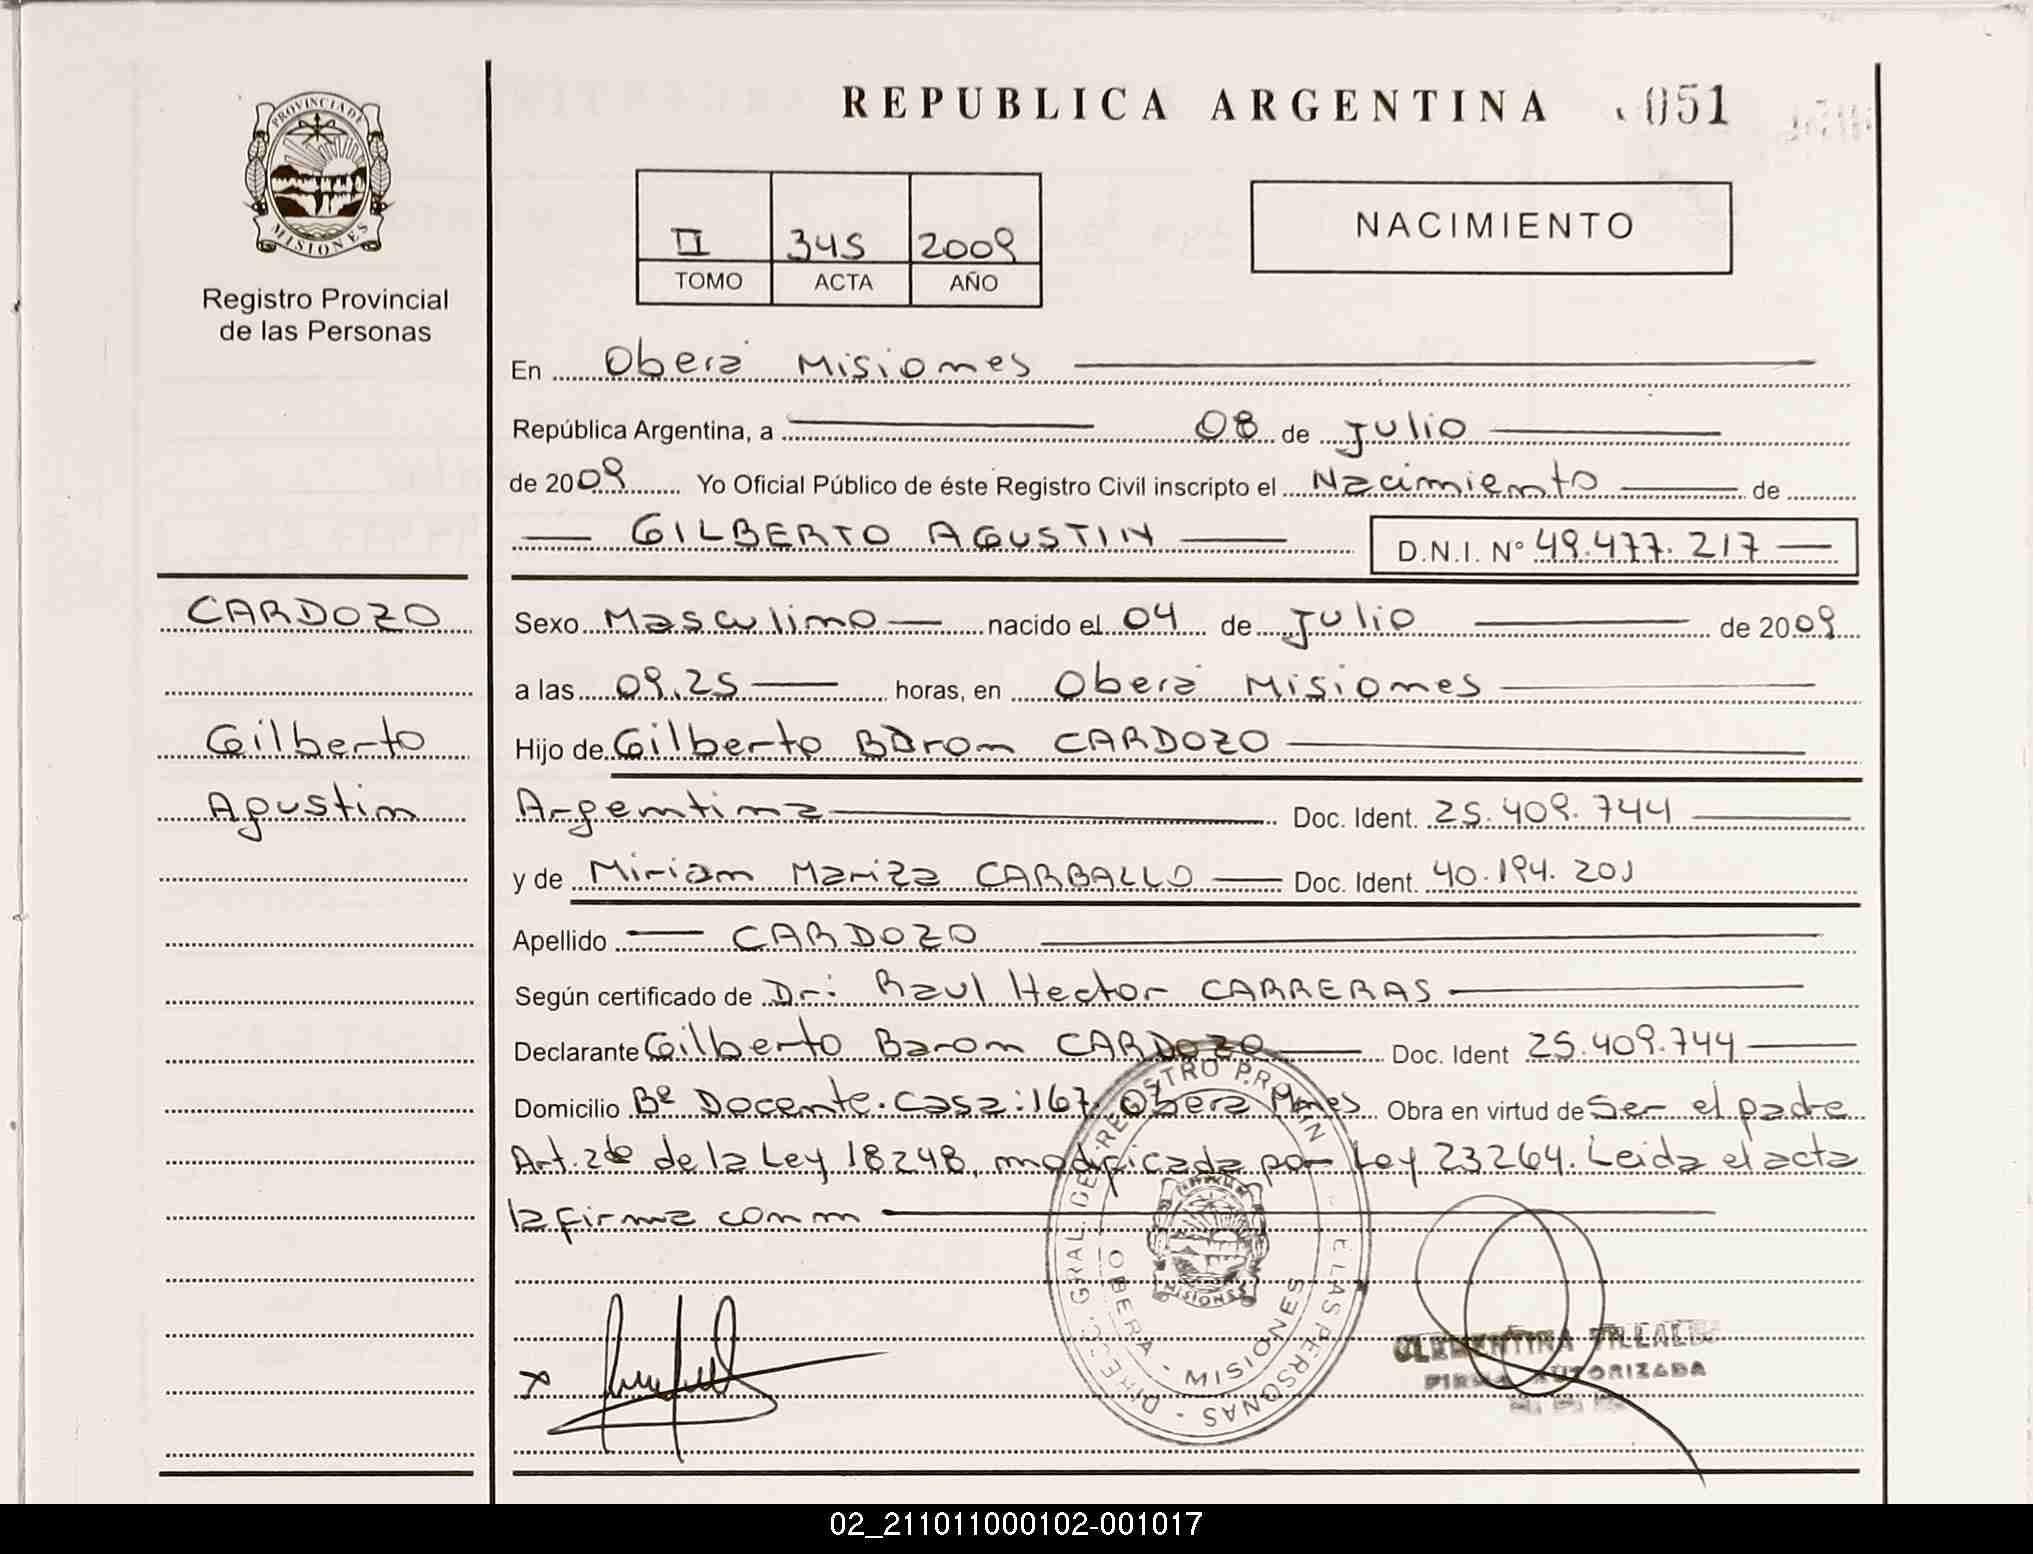 REPUBLICA ARGENTINA 051
PROVINCIA DE
MISIONES
Registro Provincial
de las Personas
II 345 2009
TOMO ACTA AÑO
NACIMIENTO
En Oberá Misiones
República Argentina, a 08 de Julio
de 2009 Yo Oficial Público de éste Registro Civil inscripto el Nacimiento de
GILBERTO AGUSTIN D.N.I. Nº 49.477.217
CARDOZO
Gilberto
Agustin
Sexo Masculino nacido el 04 de Julio de 2009
a las 09.25 horas, en Oberá Misiones
Hijo de Gilberto Baron CARDOZO
Argentina Doc. Ident. 25.409.744
y de Miriam Mariza CARBALLO Doc. Ident. 40.194.201
Apellido CARDOZO
Según certificado de Dr: Raul Hector CARRERAS
Declarante Gilberto Baron CARDOZO Doc. Ident 25.409.744
Domicilio Bº Docente. Casa: 167. Oberá Mnes Obra en virtud de Ser el padre
Art. 2do de la Ley 18248, modificada por Ley 23264. Leida el acta
la firma conm
DIREC. GRAL. DE REGISTRO PROVIN DE LAS PERSONAS
OBERA - MISIONES
MISIONES
CLEMENTINA
FIRMA AUTORIZADA
02_211011000102-001017